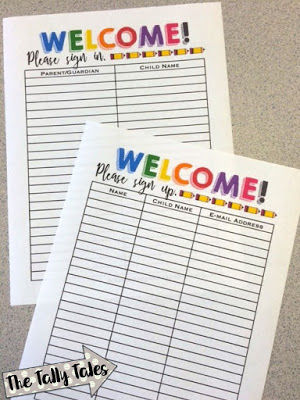 WELCOME!
Please sign in.
PARENT/GUARDIAN CHILD NAME
WELCOME!
Please sign up.
NAME CHILD NAME E-MAIL ADDRESS
The Tally Tales